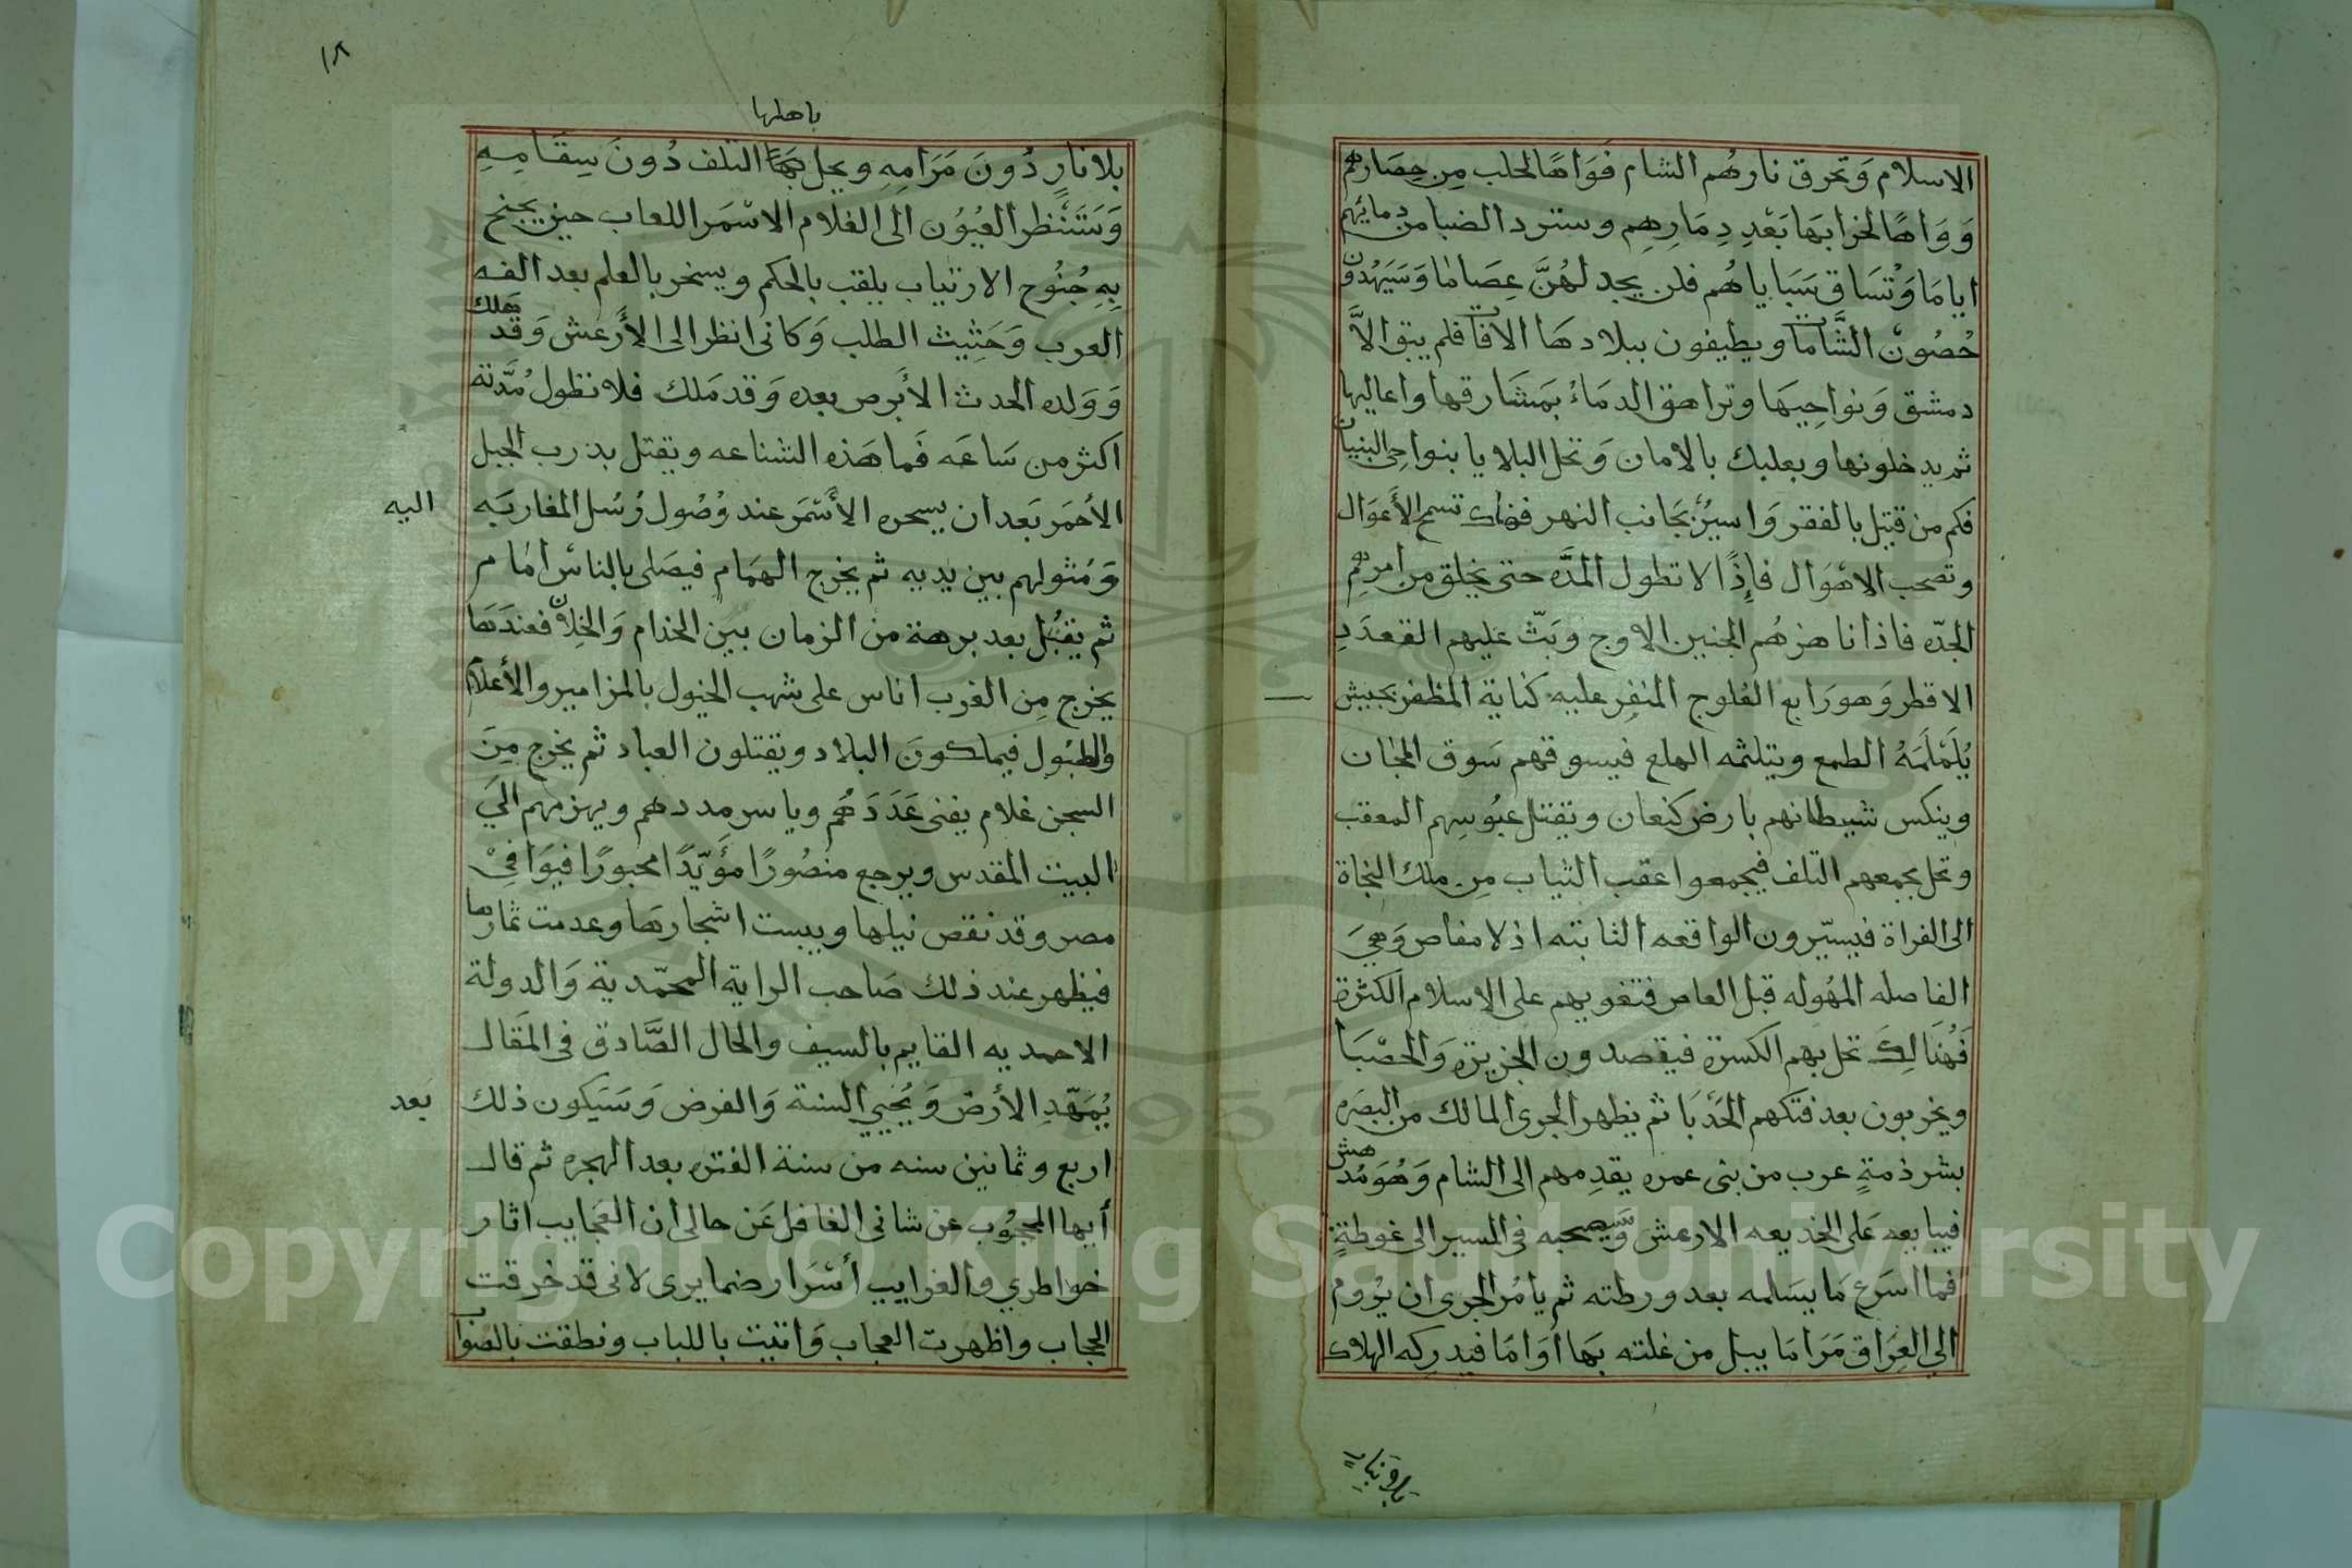 الاسلام وَتحرق نارهُم الشام فوَاهًا لحلب مِن حِصَارهم
وَوَاهًا لخرابهَا بَعْدِ دِمَارِهِم وستردالضبا من دمايهم
اياما وَتُسَاق سَبَاياهُم فلن يجد لهُنَّ عِصَامٰا وَسَيَهُدّون
حُصُونْ الشَّامات ويطيفون ببلادهَا الافات فلم يبق الاَّ
دمشق وَنواحِيهَا وتراهق الدمَاءُ بمَشَارقها واعاليها
ثم يدخلونها وبعلبك بالامان وَتحل البلايا بنواحِى البنيان
فكم من قتيل بالفقر وَاسيرٌ بجَانب النهر فهناك تسمع الأَعوَال
وتصحب الاهْوَال فإِذًا لا تطول المدَّه حتى يخلق من امرهِم
الجدّه فاذا ناهزهُم الجنين الاوج وبَثّ عَليهم القعدَدِ
الاقطر وَهو رَابع العُلوج المنفِر عليه كناية المظفر بجيش
يُلَمْلَمَهُ الطمع ويتلثمه الهلع فيسوقهم سَوق الهجان
وينكس شيطانهم بارض كنعان وتقتل عبُوسِهم المعقب
وتحل بجمعهم التلف فيجمعوا عقب الثياب مِن ملك النجاة
الى الفراة فيسيّرون الواقعه الثابته اذ لا مفاص وَهيَ
الفاصله المهُوله قبل العاص فتغويهم على الاسلام الكثرة
فَهُنَالِكَ تحل بهم الكسرة فيقصدون الجزيرة وَالحصْبَا
ويخربون بعد فتكهم الحَدْبَا ثم يظهر الجرى المالك من البصَره
بشرذمةٍ عرب من بنى عمره يقدِمهم الى الشام وَهُوَ مُدهش
فيبايعه عَلى الخديعه الارعش وَسيصحبه فى المسير الى غوطةٍ
فما اسرَع مَا يسَلمه بعد ورطته ثم يامُر الجرى ان يُوُوم
الي العِرَاق مَرَامَا يبل من غلته بهَا اوَامَا فيدرِكه الهلاك
بالانبار
١٨
باهلها
بلانارٍ دُونَ مَرَامِهِ ويحل بهَا التلف دُونَ سِقَامِهِ
وَسَتَنْظر العُيُوُن الى الغلام الاسْمَر اللعاب حين يجنح
بِهِ جُنُوح الارتياب يلقب بالحكم ويسخر بالعلم بعد الفه
العرب وَحَثِيث الطلب وَكانى انظر الى الأَرعش وَقد هلك
وَوَلده الحدث الأَبرص بعده وَقد مَلك فلا تطول مُدَّته
اكثر من سَاعَه فَما هَذه الشناعه ويقتل بدرب الجبل
الأحمَر بَعد ان يسحره الأَسْمَر عند وُصُول رُسُل المغاربَه اليه
وَمُثولهم بين يديه ثم يخرج الهمَام فيصَلى بالناسْ امَام
ثم يقبُل بعد برهة من الزمان بين الخدام وَالخِلان فعندَهَا
يخرج مِن الغرب اناس على شهب الخيول بالمزامير والأعلام
والطبُول فيملكونَ البلاد ويقتلون العباد ثم يخرج مِنَ
السجن غلام يفنى عَدَدَهُم وياسر مددهم ويهزمهم الىَ
البيت المقدس ويرجع منصُورًا مؤَيّدًا محبورًا فيوَافِىْ
مصر وقد نقص نيلها ويبست اشجارهَا وعدمت ثمارها
فيظهر عند ذلك صَاحب الراية المحمّدية وَالدولة
الاحمديه القايم بالسيف والحال الصَّادق فى المقَال
يُمَهّدِ الأرض وَيُحيي السنة وَالفرض وَسَيكون ذلك بَعد
اربع وثمانين سنه من سنة الفتره بعد الهجره ثم قال
أيها المحجُوب عن شانى الغافل عَن حالى ان العَجايب اثار
خواطري والغرايب أسْرَار ضمايرى لانى قد خرقت
الحجاب واظهرت العجاب وَاتيت باللباب ونطقت بالصوَاب
Copyright © King Saud University
1957